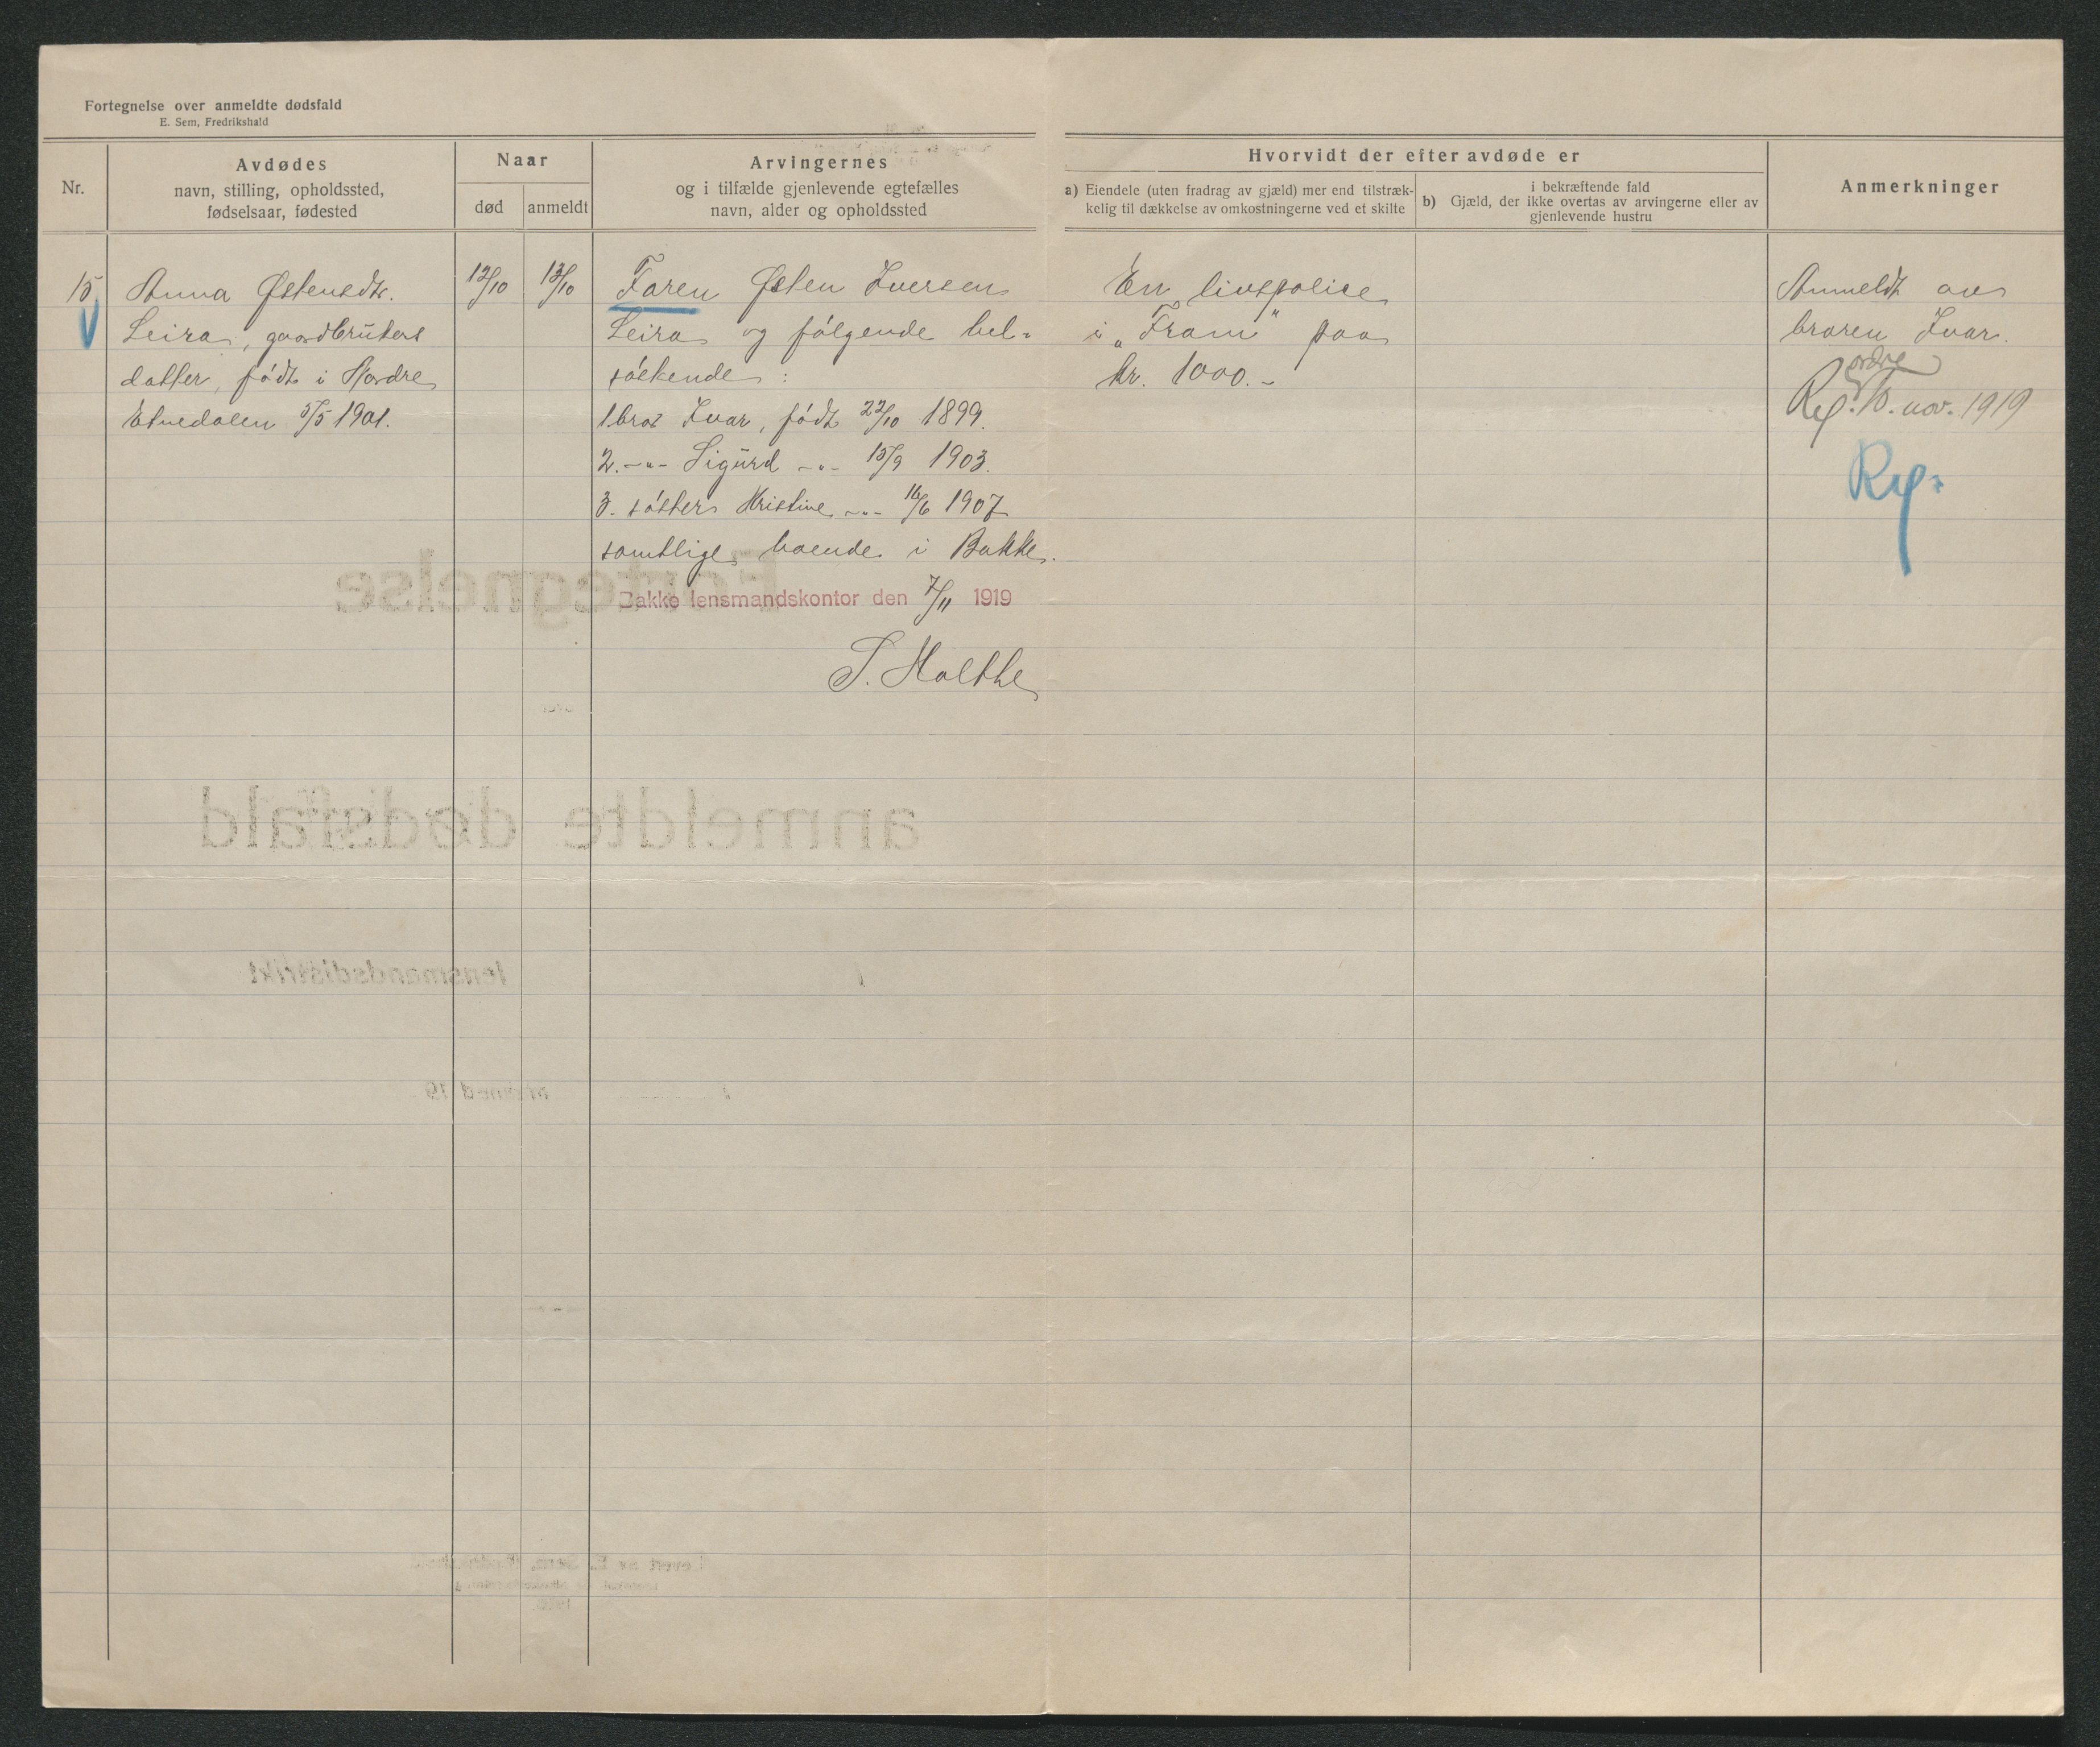 Fortegnelse over anmeldte dødsfald
E. Sem, Fredrikshald
Nr.
Avdødes
navn, stilling, opholdssted,
fødselsaar, fødested
Naar
død
anmeldt
Arvingernes
og i tilfælde gjenlevende egtefælles
navn, alder og opholdssted
Hvorvidt der efter avdøde er
a) Eiendele (uten fradrag av gjæld) mer end tilstræk-
kelig til dækkelse av omkostningerne ved et skifte
b) i bekræftende fald
Gjæld, der ikke overtas av arvingerne eller av
gjenlevende hustru
Anmerkninger
15
Anna Østensdtr.
Leira, gaardbrukers
datter, født i Nordre
Etnedalen 5/5 1901.
12/10
13/10
Faren Østen Iversen
Leira og følgende hel-
søskende:
1 bror Ivar, født 22/10 1899.
2. -"- Sigurd -"- 15/9 1903.
3. søster Kristine -"- 16/6 1907
samtlige boende i Bakke.
Bakke lensmandskontor den 7/11 1919
S. Holthe
En livspolice
i „Fram" paa
kr. 1000.-
Anmeldt av
broren Ivar.
ordre
Rep. 10. nov. 1919
Rep.
Fortegnelse
anmeldte dødsfald
lensmandsdistrikt